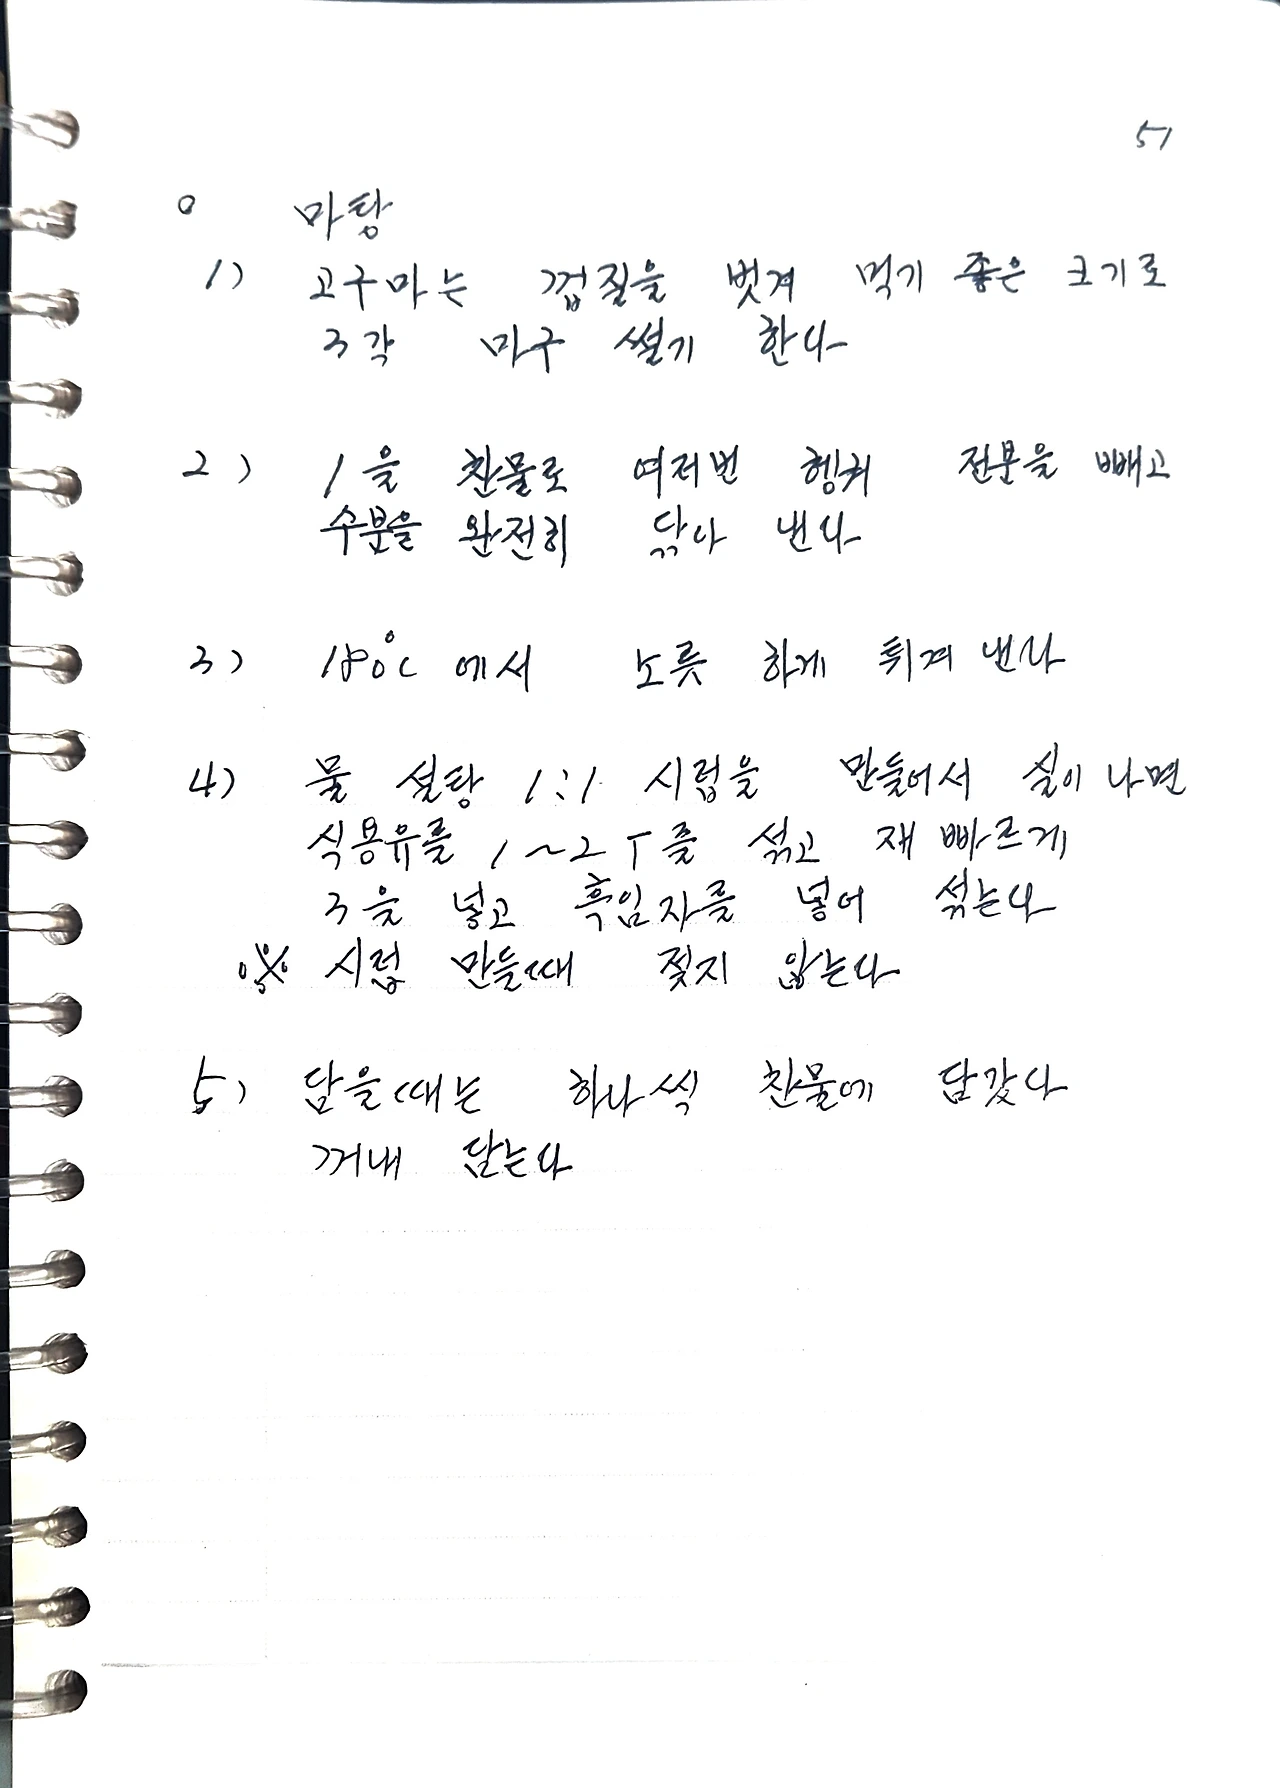 51
o 마탕
1) 고구마는 껍질을 벗겨 먹기 좋은 크기로
3각 마구 썰기 한다
2) 1을 찬물로 여러번 헹궈 전분을 빼고
수분을 완전히 닦아 낸다
3) 180°C에서 노릇 하게 튀겨 낸다
4) 물 설탕 1:1 시럽을 만들어서 실이 나면
식용유를 1~2T를 섞고 재 빠르게
3을 넣고 흑임자를 넣어 섞는다
※ 시럽 만들때 젖지 않는다
5) 담을때는 하나씩 찬물에 담갔다
꺼내 담는다